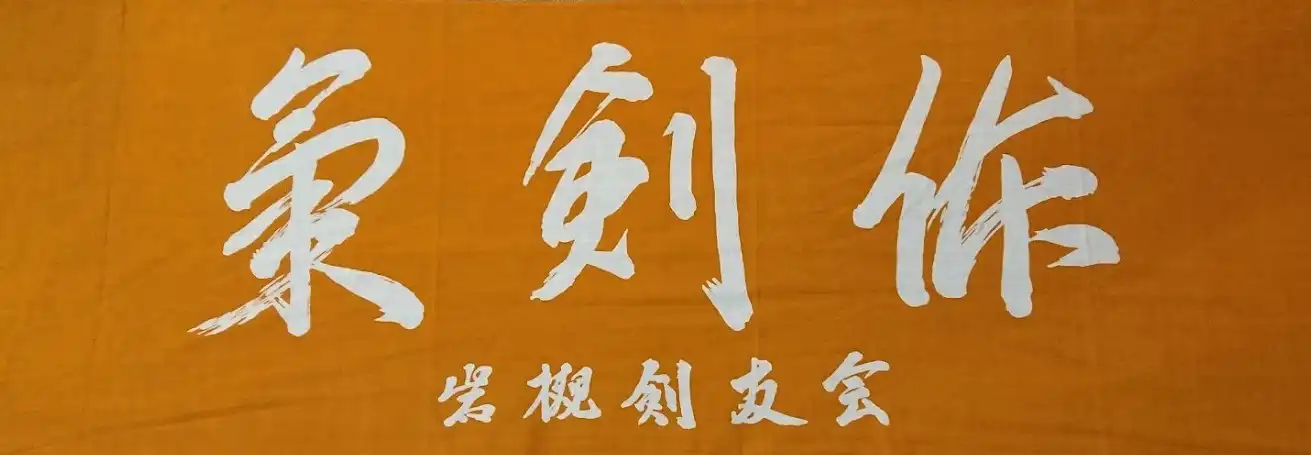 氣剣作
岩槻剣友会